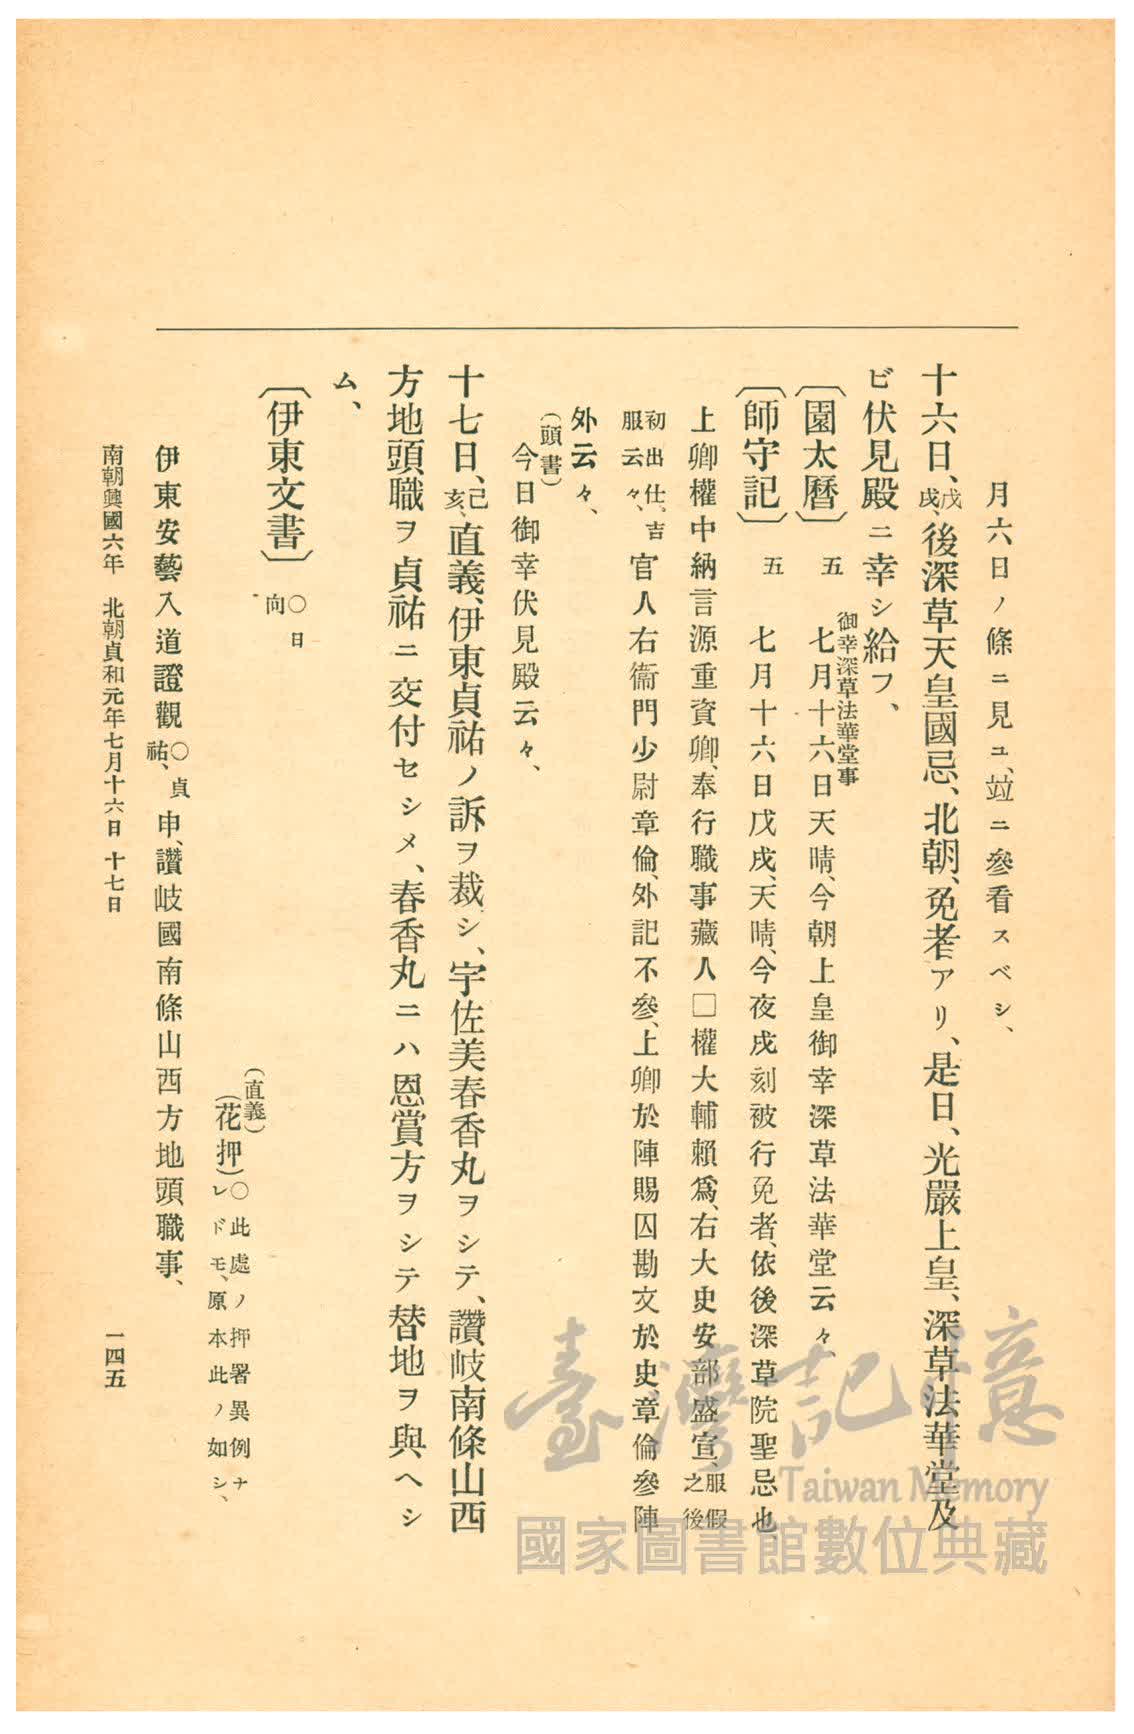 月六日ノ條ニ見ユ、竝ニ參看スベシ、
十六日、戊戌、後深草天皇國忌、北朝、免者アリ、是日、光嚴上皇、深草法華堂及
ビ伏見殿ニ幸シ給フ、
御幸深草法華堂事
〔園太曆〕 五 七月十六日天晴、今朝上皇御幸深草法華堂云々、
〔師守記〕 五 七月十六日戊戌、天晴、今夜戌刻被行免者、依後深草院聖忌也、
上卿權中納言源重資卿、奉行職事藏人□權大輔賴爲、右大史安部盛宣、服假之後
初出仕。吉服云々、官人右衞門少尉章倫、外記不參、上卿於陣賜囚勘文於史、章倫參陣
外云々、
(頭書)
今日御幸伏見殿云々、
十七日、己亥、直義、伊東貞祐ノ訴ヲ裁シ、宇佐美春香丸ヲシテ、讚岐南條山西
方地頭職ヲ貞祐ニ交付セシメ、春香丸ニハ恩賞方ヲシテ替地ヲ與ヘシ
ム、
〔伊東文書〕 ○日向
(直義)
(花押)○此處ノ押署異例ナレドモ、原本此ノ如シ、
伊東安藝入道證觀○貞祐、申、讚岐國南條山西方地頭職事、
南朝興國六年 北朝貞和元年七月十六日 十七日
一四五
臺灣記憶
Taiwan Memory
國家圖書館數位典藏